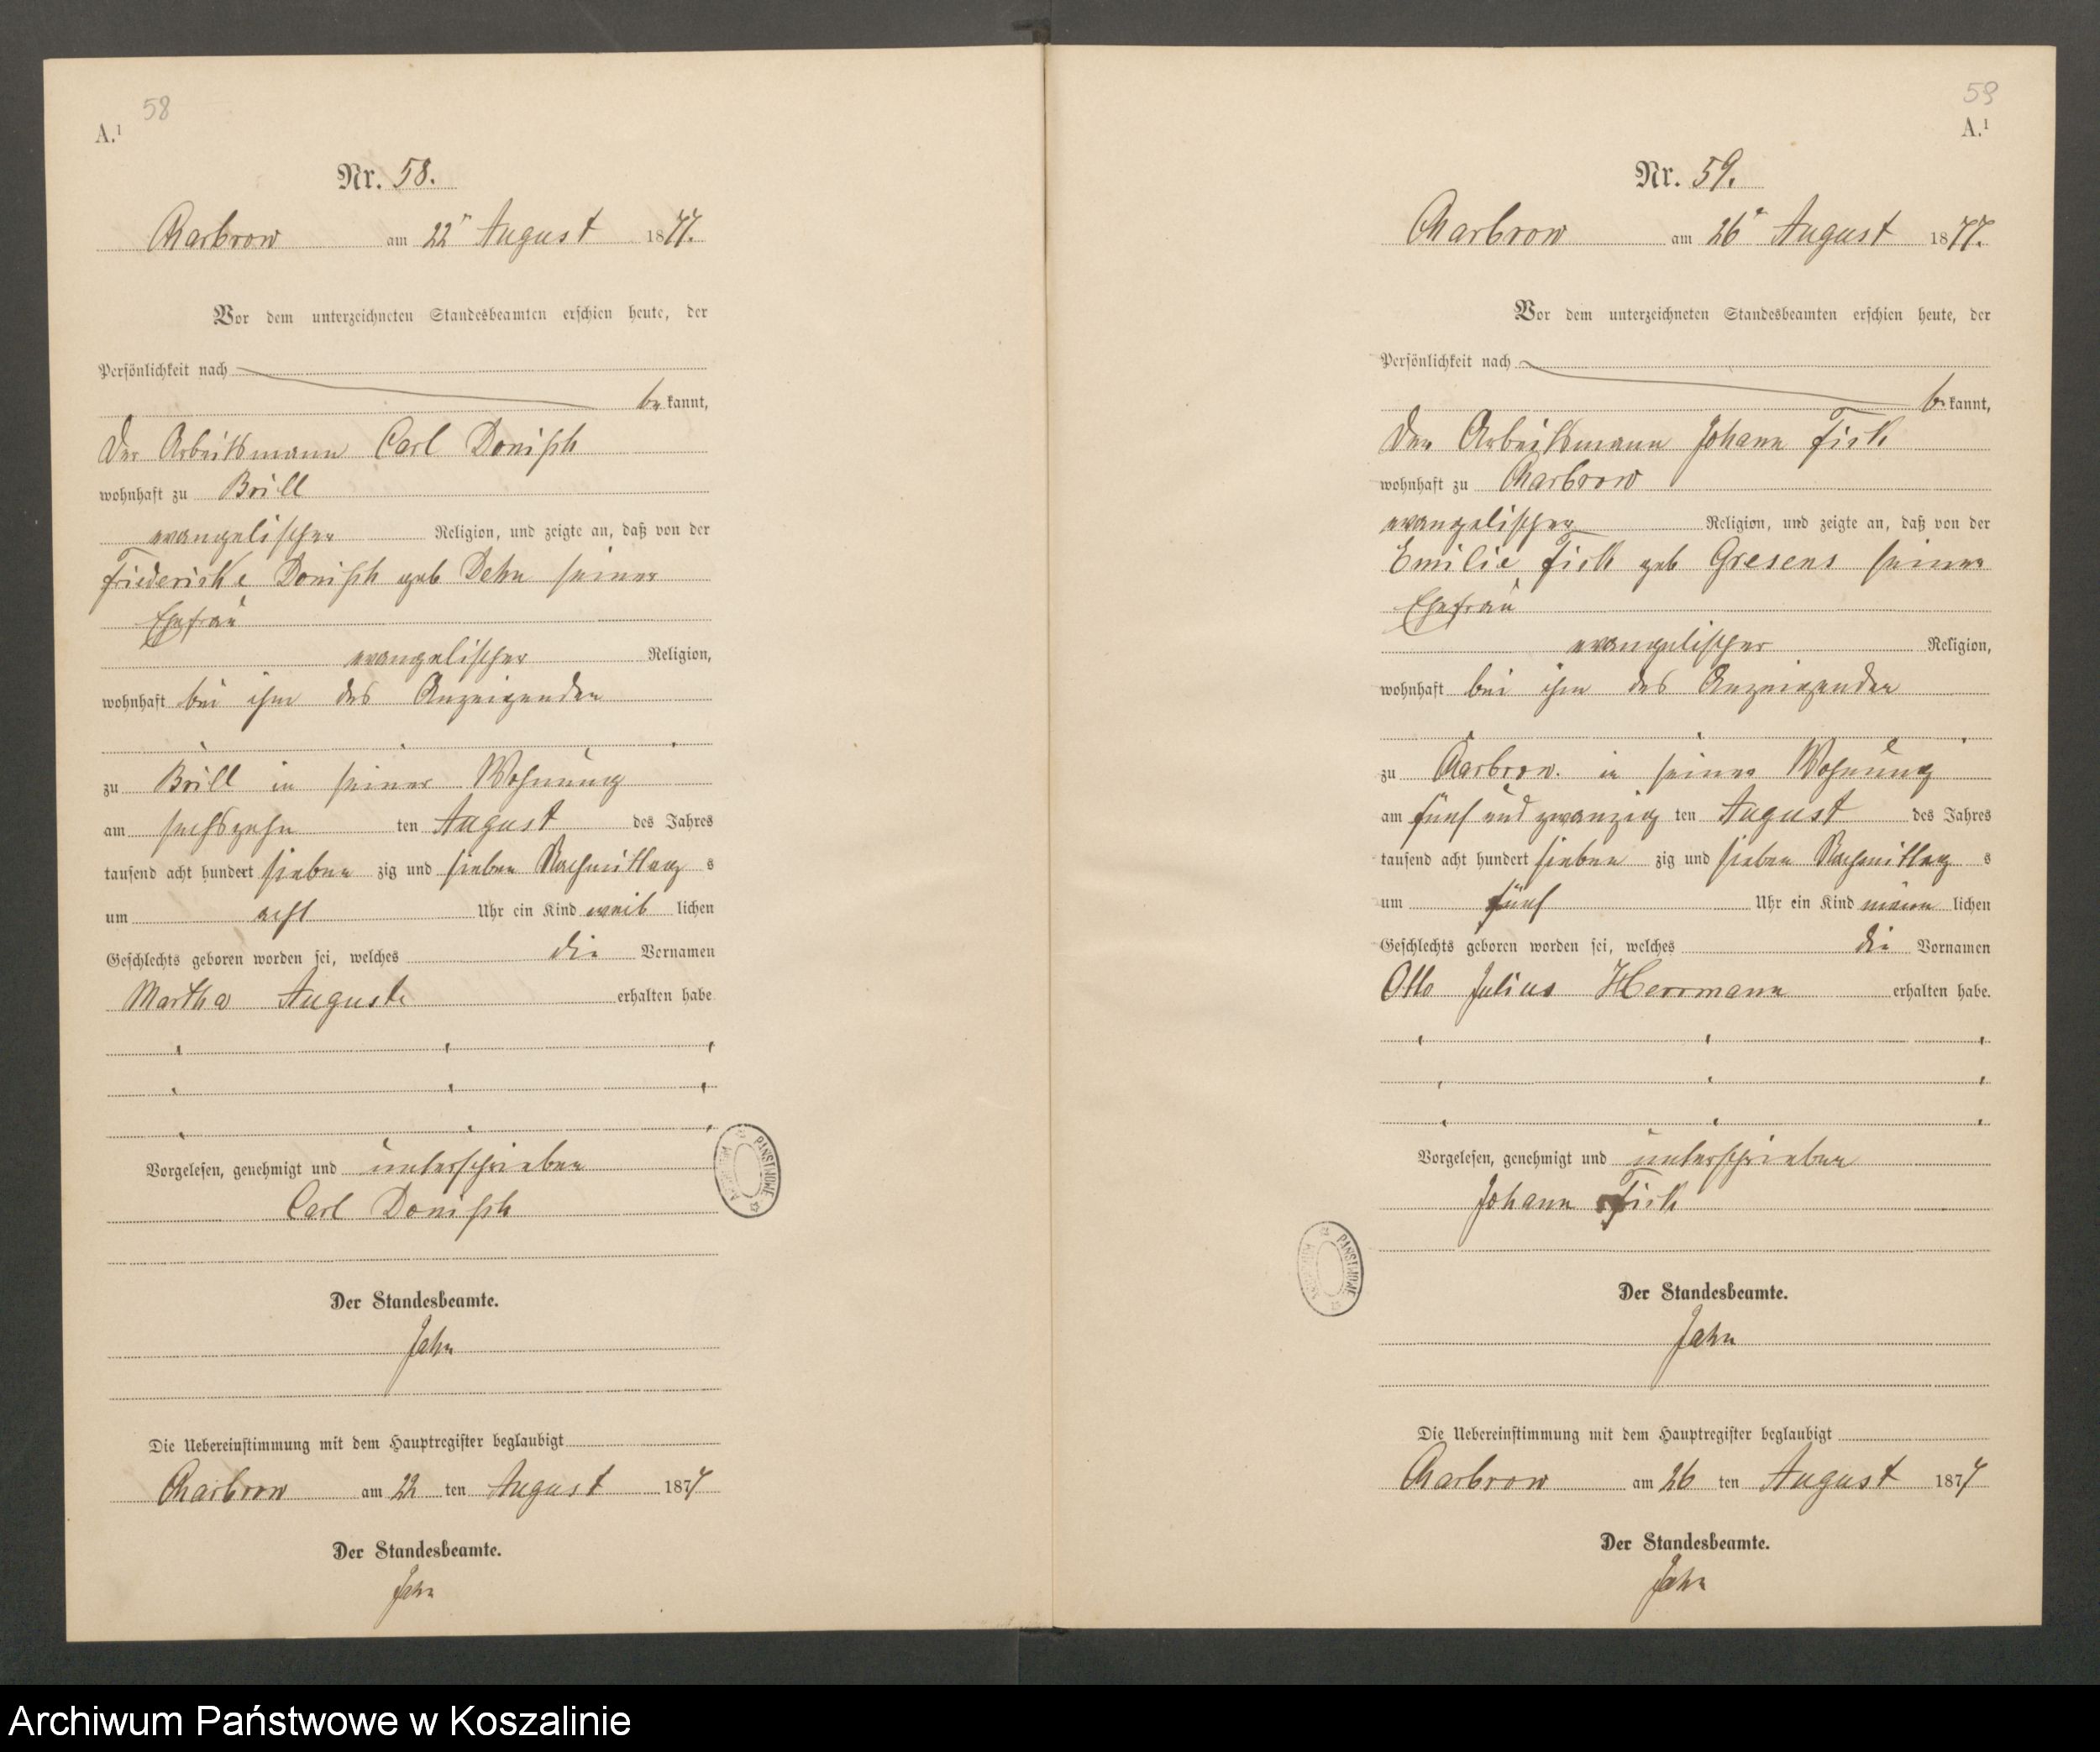 58
A.¹
Nr. 58.
Charbrow am 22ᵗ August 1877.
Vor dem unterzeichneten Standesbeamten erschien heute, der
Persönlichkeit nach
be kannt,
Der Arbeitsmann Carl
wohnhaft zu
evangelischer Religion, und zeigte an, daß von der
Friedericke geb Dehn seiner
Ehefrau
evangelischer Religion,
wohnhaft bei ihm des Anzeigenden
zu in seiner Wohnung
am sechszehn ten August des Jahres
tausend acht hundert sieben zig und sieben Nachmittag s
um acht Uhr ein Kind weib lichen
Geschlechts geboren worden sei, welches die Vornamen
Martha Auguste erhalten habe
Vorgelesen, genehmigt und unterschrieben
Carl
Der Standesbeamte.
Jahn
Die Uebereinstimmung mit dem Hauptregister beglaubigt
Charbrow am 22 ten August 1877
Der Standesbeamte.
Jahn
ARCHIWUM PAŃSTWOWE
59
A.¹
Nr. 59.
Charbrow am 26ᵗ August 1877.
Vor dem unterzeichneten Standesbeamten erschien heute, der
Persönlichkeit nach
be kannt,
Der Arbeitsmann Johann Fick
wohnhaft zu Charbrow
evangelischer Religion, und zeigte an, daß von der
Emilie Fick geb Gresens seiner
Ehefrau
evangelischer Religion,
wohnhaft bei ihm des Anzeigenden
zu Charbrow. in seiner Wohnung
am fünf und zwanzig ten August des Jahres
tausend acht hundert sieben zig und sieben Nachmittag s
um fünf Uhr ein Kind männ lichen
Geschlechts geboren worden sei, welches die Vornamen
Otto Julius Herrmann erhalten habe.
Vorgelesen, genehmigt und unterschrieben
Johann Fick
Der Standesbeamte.
Jahn
Die Uebereinstimmung mit dem Hauptregister beglaubigt
Charbrow am 26 ten August 1877
Der Standesbeamte.
Jahn
ARCHIWUM PAŃSTWOWE
Archiwum Państwowe w Koszalinie